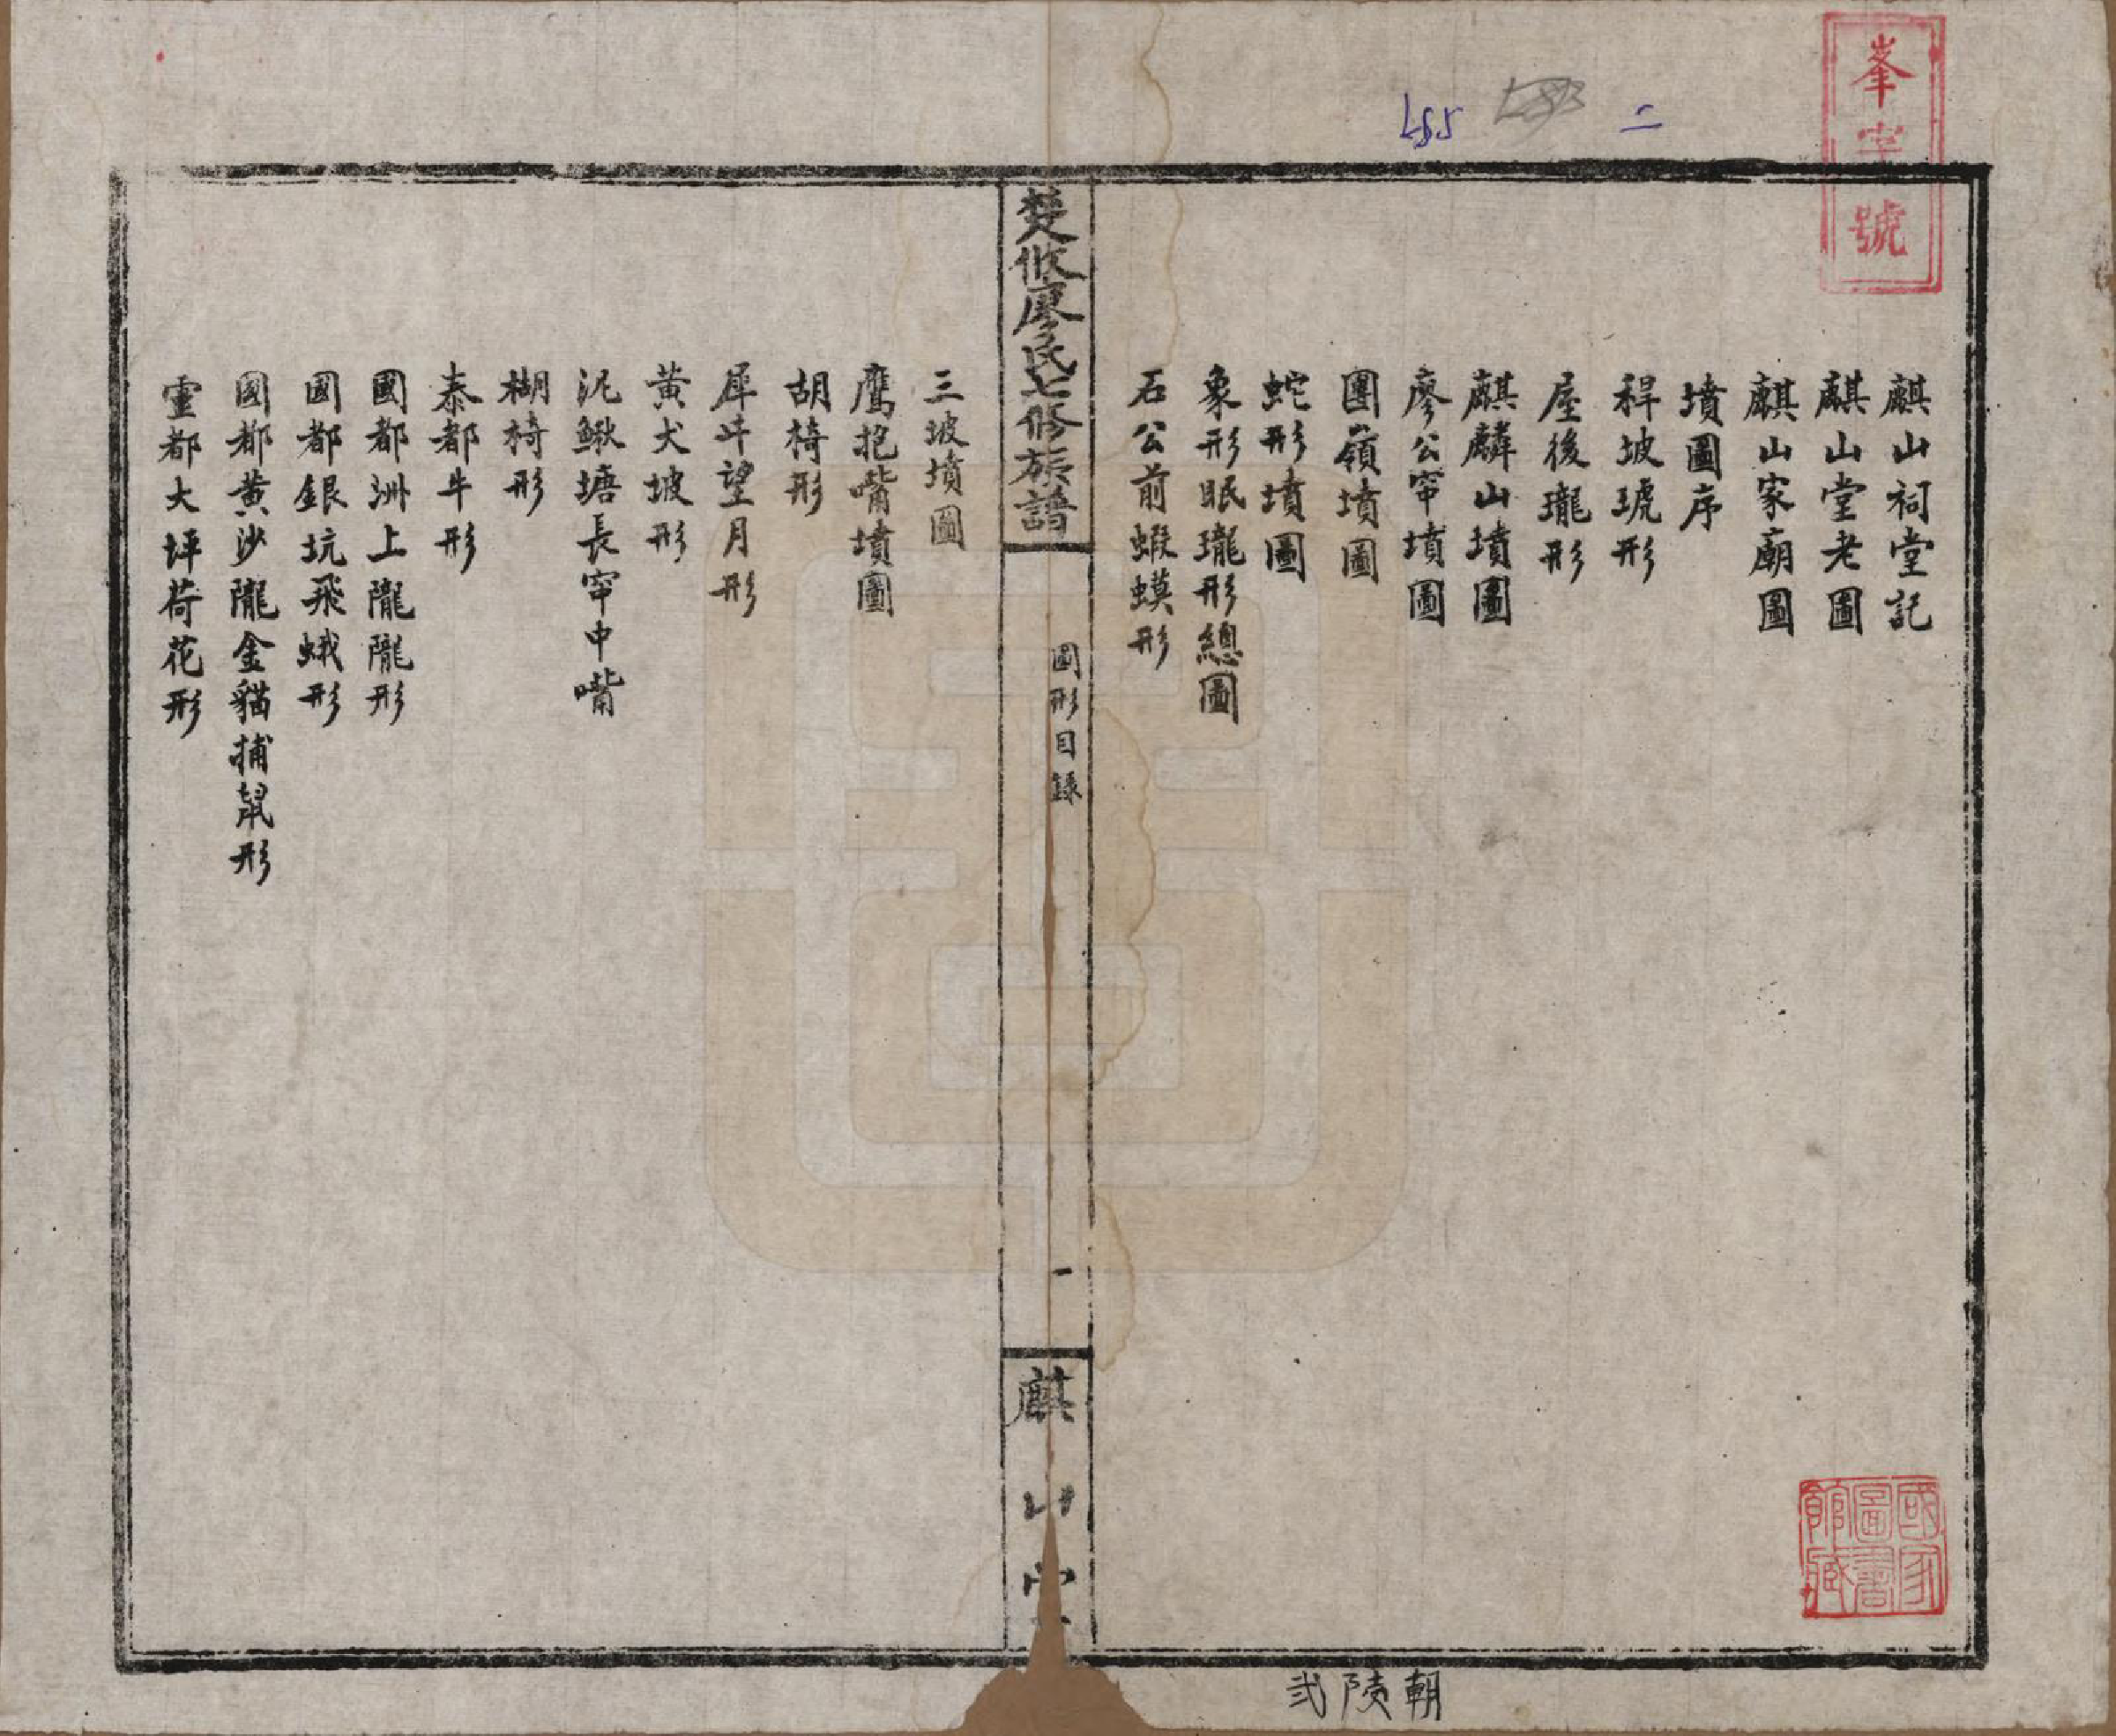 峯字號
二
麒山祠堂記
麒山堂老圖
麒山家廟圖
墳圖序
稈坡琥形
屋後瓏形
麒麟山墳圖
廖公窂墳圖
團嶺墳圖
蛇形墳圖
象形眠瓏形總圖
石公前蝦蟆形
楚攸廖氏七修族譜
圖形目錄
一
麒山堂
三坡墳圖
鷹抱嘴墳圖
胡椅形
犀牛望月形
黄犬坡形
泥鰍塘長窂中嘴
棷椅形
泰都牛形
國都洲上隴隴形
國都銀坑飛蛾形
國都黄沙隴金貓捕鼠形
靈都大坪荷花形
國家圖書館藏
朝陵弍